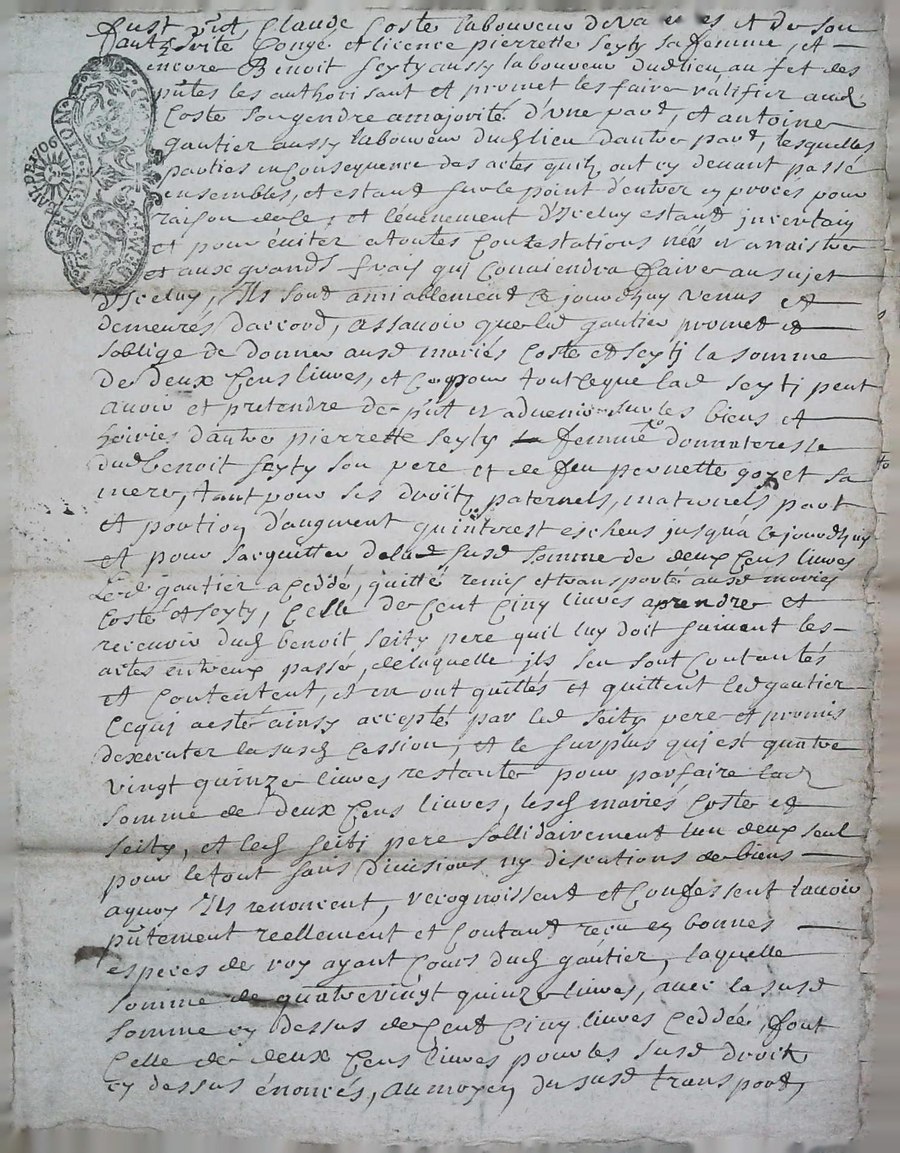 fust p̃nt Claude Coste laboureur de et de son
authorité Congé et licence pierrette Seyty sa femme, et
encore Benoit Seyty aussy laboureur dud lieu au fet des
p̃ntes les authorisant et promet les faire ratifier aud
Coste son gendre a majorité d'une part, et antoine
gautier aussy laboureur dud lieu dautre part, lesquelles
parties in Consequence des actes quils ont cy devant passé
ensembles, et estant sur le point d'entrer en proces pour
raison de ce, et l'évenement d'Iceluy estant incertain
et pour éviter a toutes Contestations néés et a naistre
et aux grands frais qui Conviendra faire au sujet
d'Iceluy, Ils sont amiablement ce jourdhuy venus et
demeurés daccord, assavoir que led gautier promet et
soblige de donner ausd mariés Coste et Seyti la somme
de deux Cens livres, et ce pour tout ce que lad Seyti peut
avoir et pretendre de p̃nt et advenir sur les biens et
hoiries dautre pierrette Seyty femme donnateresse
dud benoit Seyty son pere et de feu pernette goyet sa
mere, tant pour ses droits paternels, maternels part
et portion d'augment qu'interest escheus jusqua ce jourdhuy
et pour sacquitter de lad susd somme de deux Cens livres
Led gautier a Ceddé, quitté remis et transporté ausd mariés
Coste et Seyty, Celle de Cent Cinq livres aprendre et
recevoir dud benoit Seity pere quil luy doit suivant les
actes entreux passé, de laquelle ils sen sont Contantés
et Contentent, et en ont quittés et quittent led gautier
Ce qui a esté ainsy accepté par led Seity pere et promis
dexecuter la susd Cession, et le surplus qui est quatre
vingt quinze livres restante pour parfaire lad
somme de deux Cens livres, lesd mariés Coste et
Seity, et led Seiti pere sollidairement lun deux seul
pour le tout sans Divisions ny discutions de biens
a quoy Ils renoncent, recognoissent et Confessent lavoir
p̃ntement reellement et Contant receu en bonnes
especes de roy ayant Cours dud gautier, laquelle
somme de quatrevingt quinze livres, avec la susd
somme cy dessus de Cent Cinq livres Ceddée, font
Celle de deux Cens livres pour les susd droits
cy dessus énoncés, au moyen du susd transport,